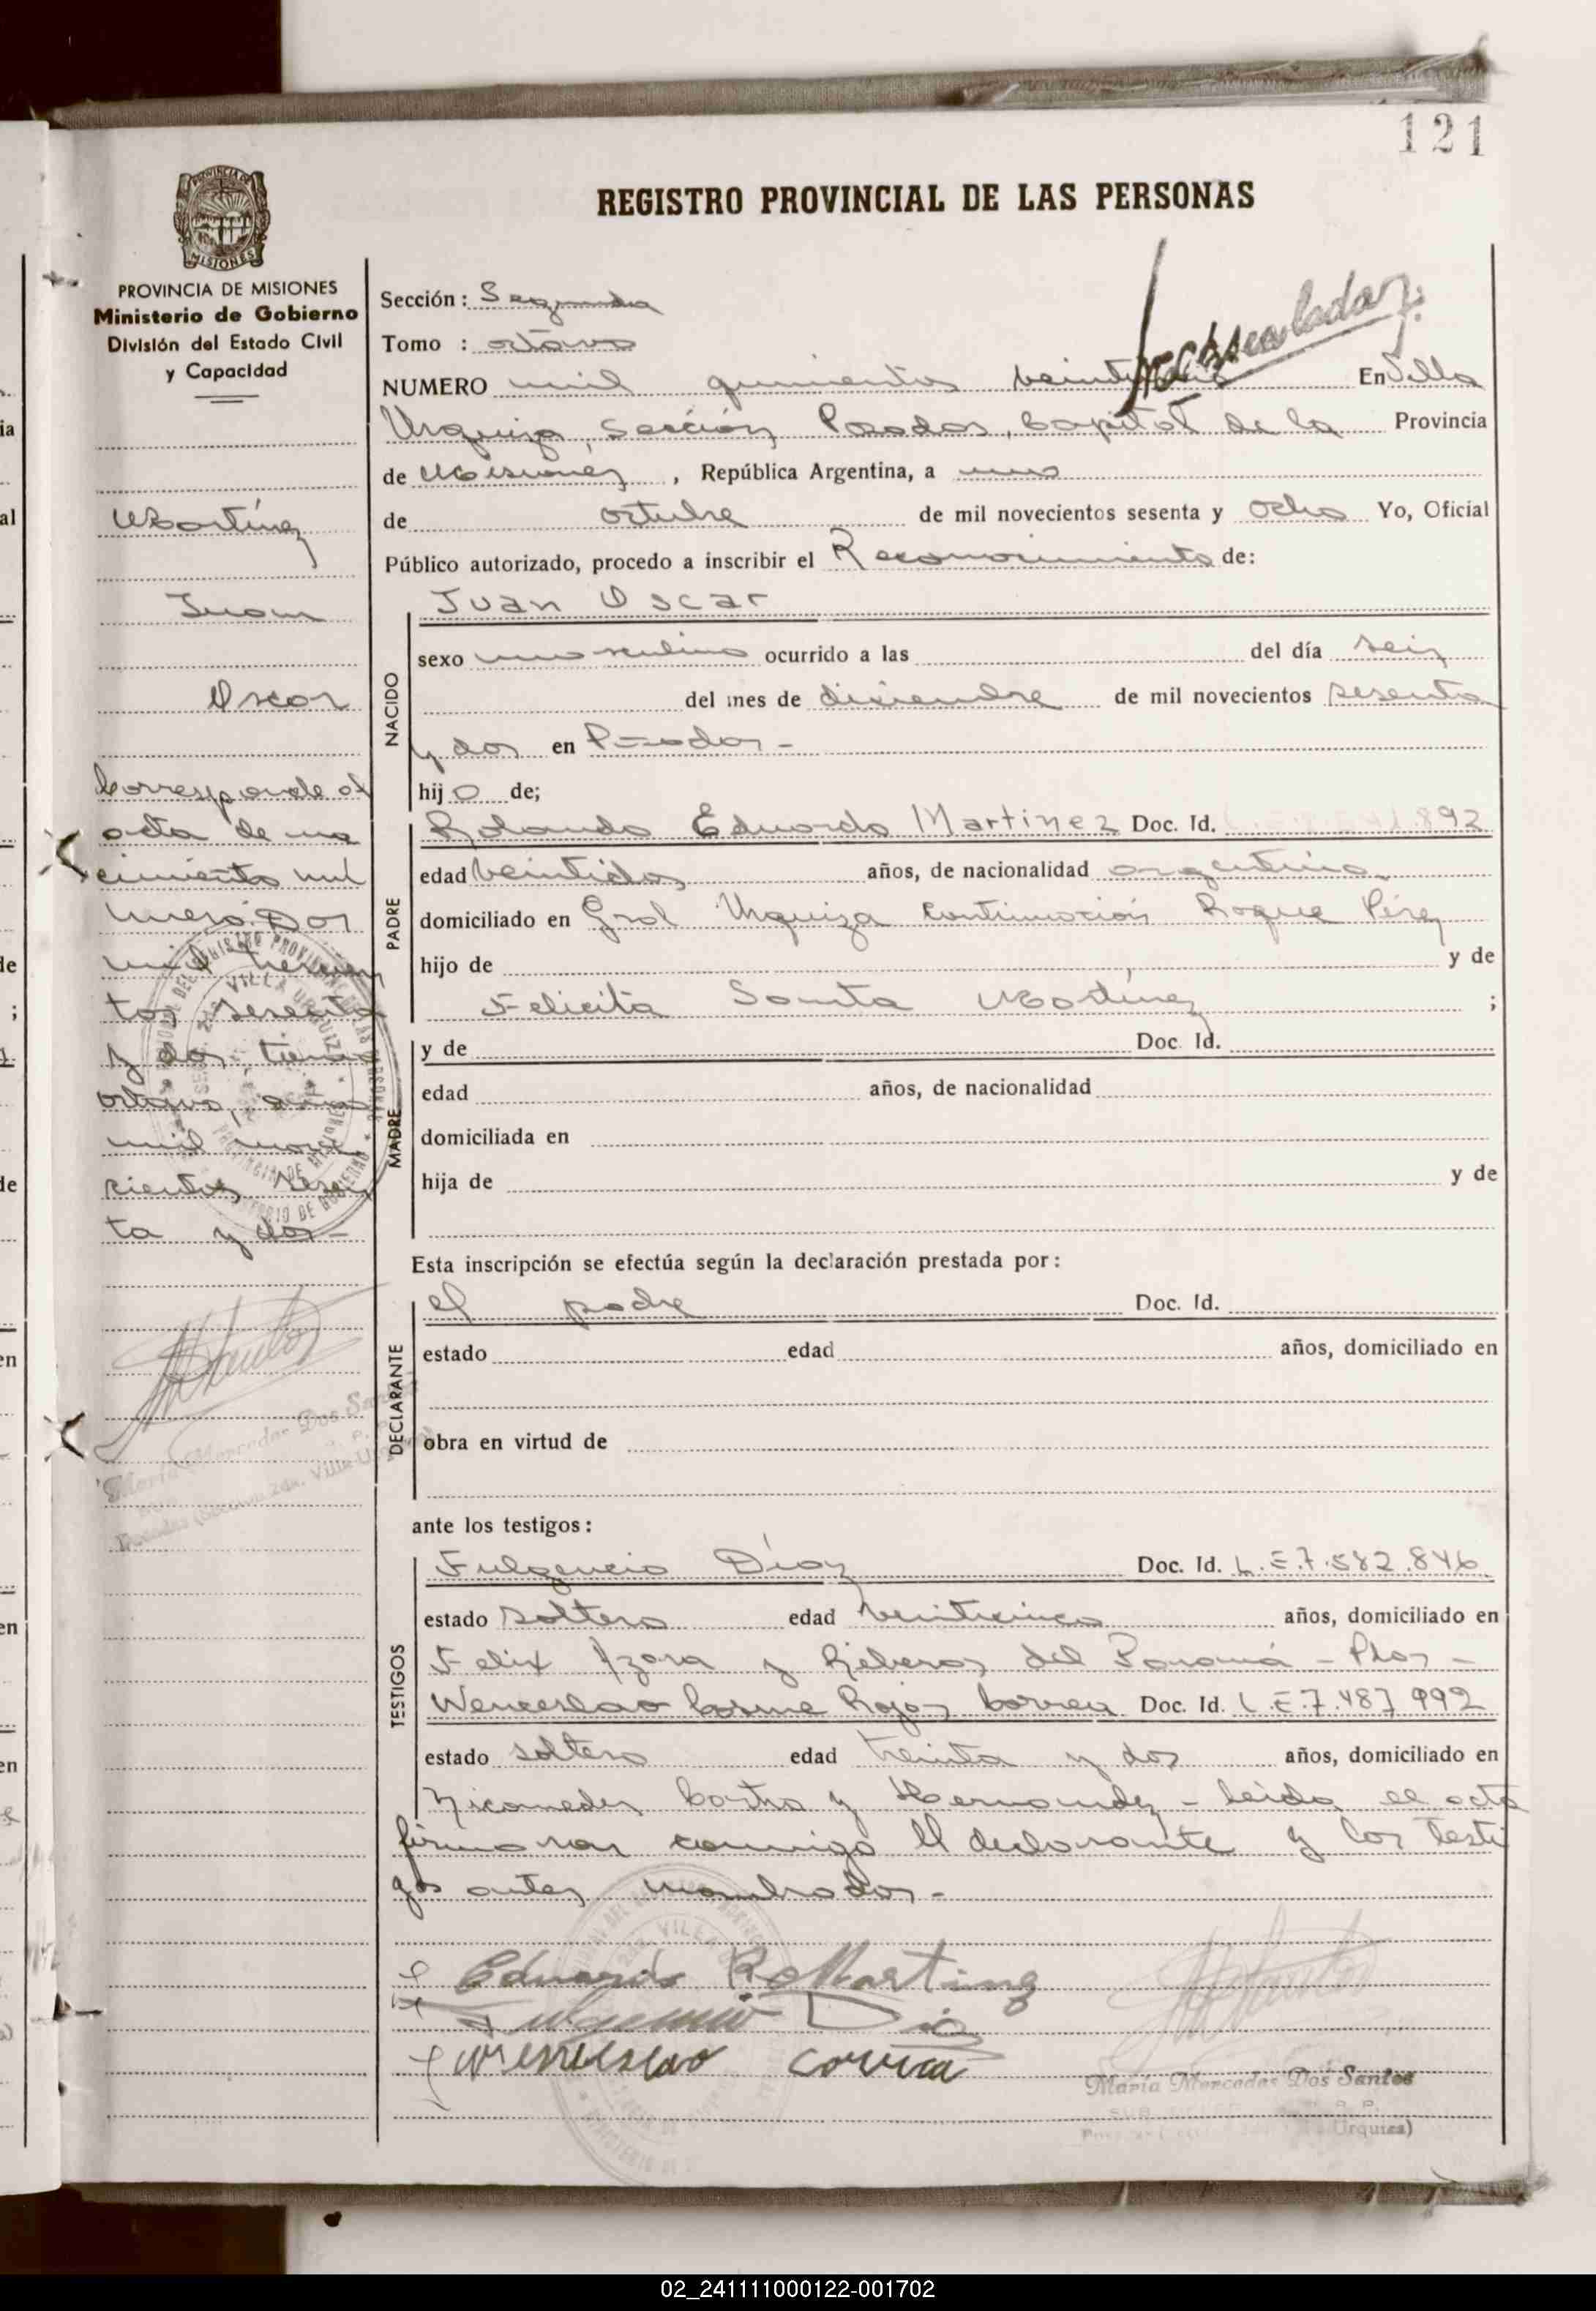 121
REGISTRO PROVINCIAL DE LAS PERSONAS
PROVINCIA DE
MISIONES
PROVINCIA DE MISIONES
Ministerio de Gobierno
División del Estado Civil
y Capacidad
Martínez
Juan
Oscar
Corresponde al
acta de na
cimiento nú
mero Dos
mil trescien
tos sesenta
y dos, tomo
octavo, año
mil nove
cientos sesen
ta y dos -
Sección: Segunda
Tomo : octavo
NUMERO mil quinientos En Villa
Urquiza, Sección Posadas, Capital de la Provincia
de Misiones, República Argentina, a uno
de octubre de mil novecientos sesenta y ocho Yo, Oficial
Público autorizado, procedo a inscribir el Reconocimiento de:
NACIDO
Juan Oscar
sexo masculino ocurrido a las del día seis
del mes de diciembre de mil novecientos sesenta
y dos en Posadas -
hijo de;
PADRE
Rolando Eduardo Martinez Doc. Id. 892
edad veintidos años, de nacionalidad argentino
domiciliado en Gral Urquiza continuación Roque Pérez
hijo de y de
Felicita Santa Martínez ;
MADRE
y de Doc. Id.
edad años, de nacionalidad
domiciliada en
hija de y de
Esta inscripción se efectúa según la declaración prestada por:
DECLARANTE
el padre Doc. Id.
estado edad años, domiciliado en
obra en virtud de
ante los testigos:
TESTIGOS
Fulgencio Díaz Doc. Id. L.E.7.582.846
estado soltero edad veinticinco años, domiciliado en
Felix Azara y Riberas del Paraná - Pdas -
Wenceslao Cosme Rojas Correa Doc. Id. L.E.7.487 992
estado soltero edad treinta y dos años, domiciliado en
Nicomedes Castro y Hernandez - leida el acta
firmaron conmigo el declarante y los testi
gos antes nombrados -
Eduardo R Martinez
Fulgencio Diaz
Wenceslao Correa
María Mercedes Dos Santos
Urquiza)
02_241111000122-001702